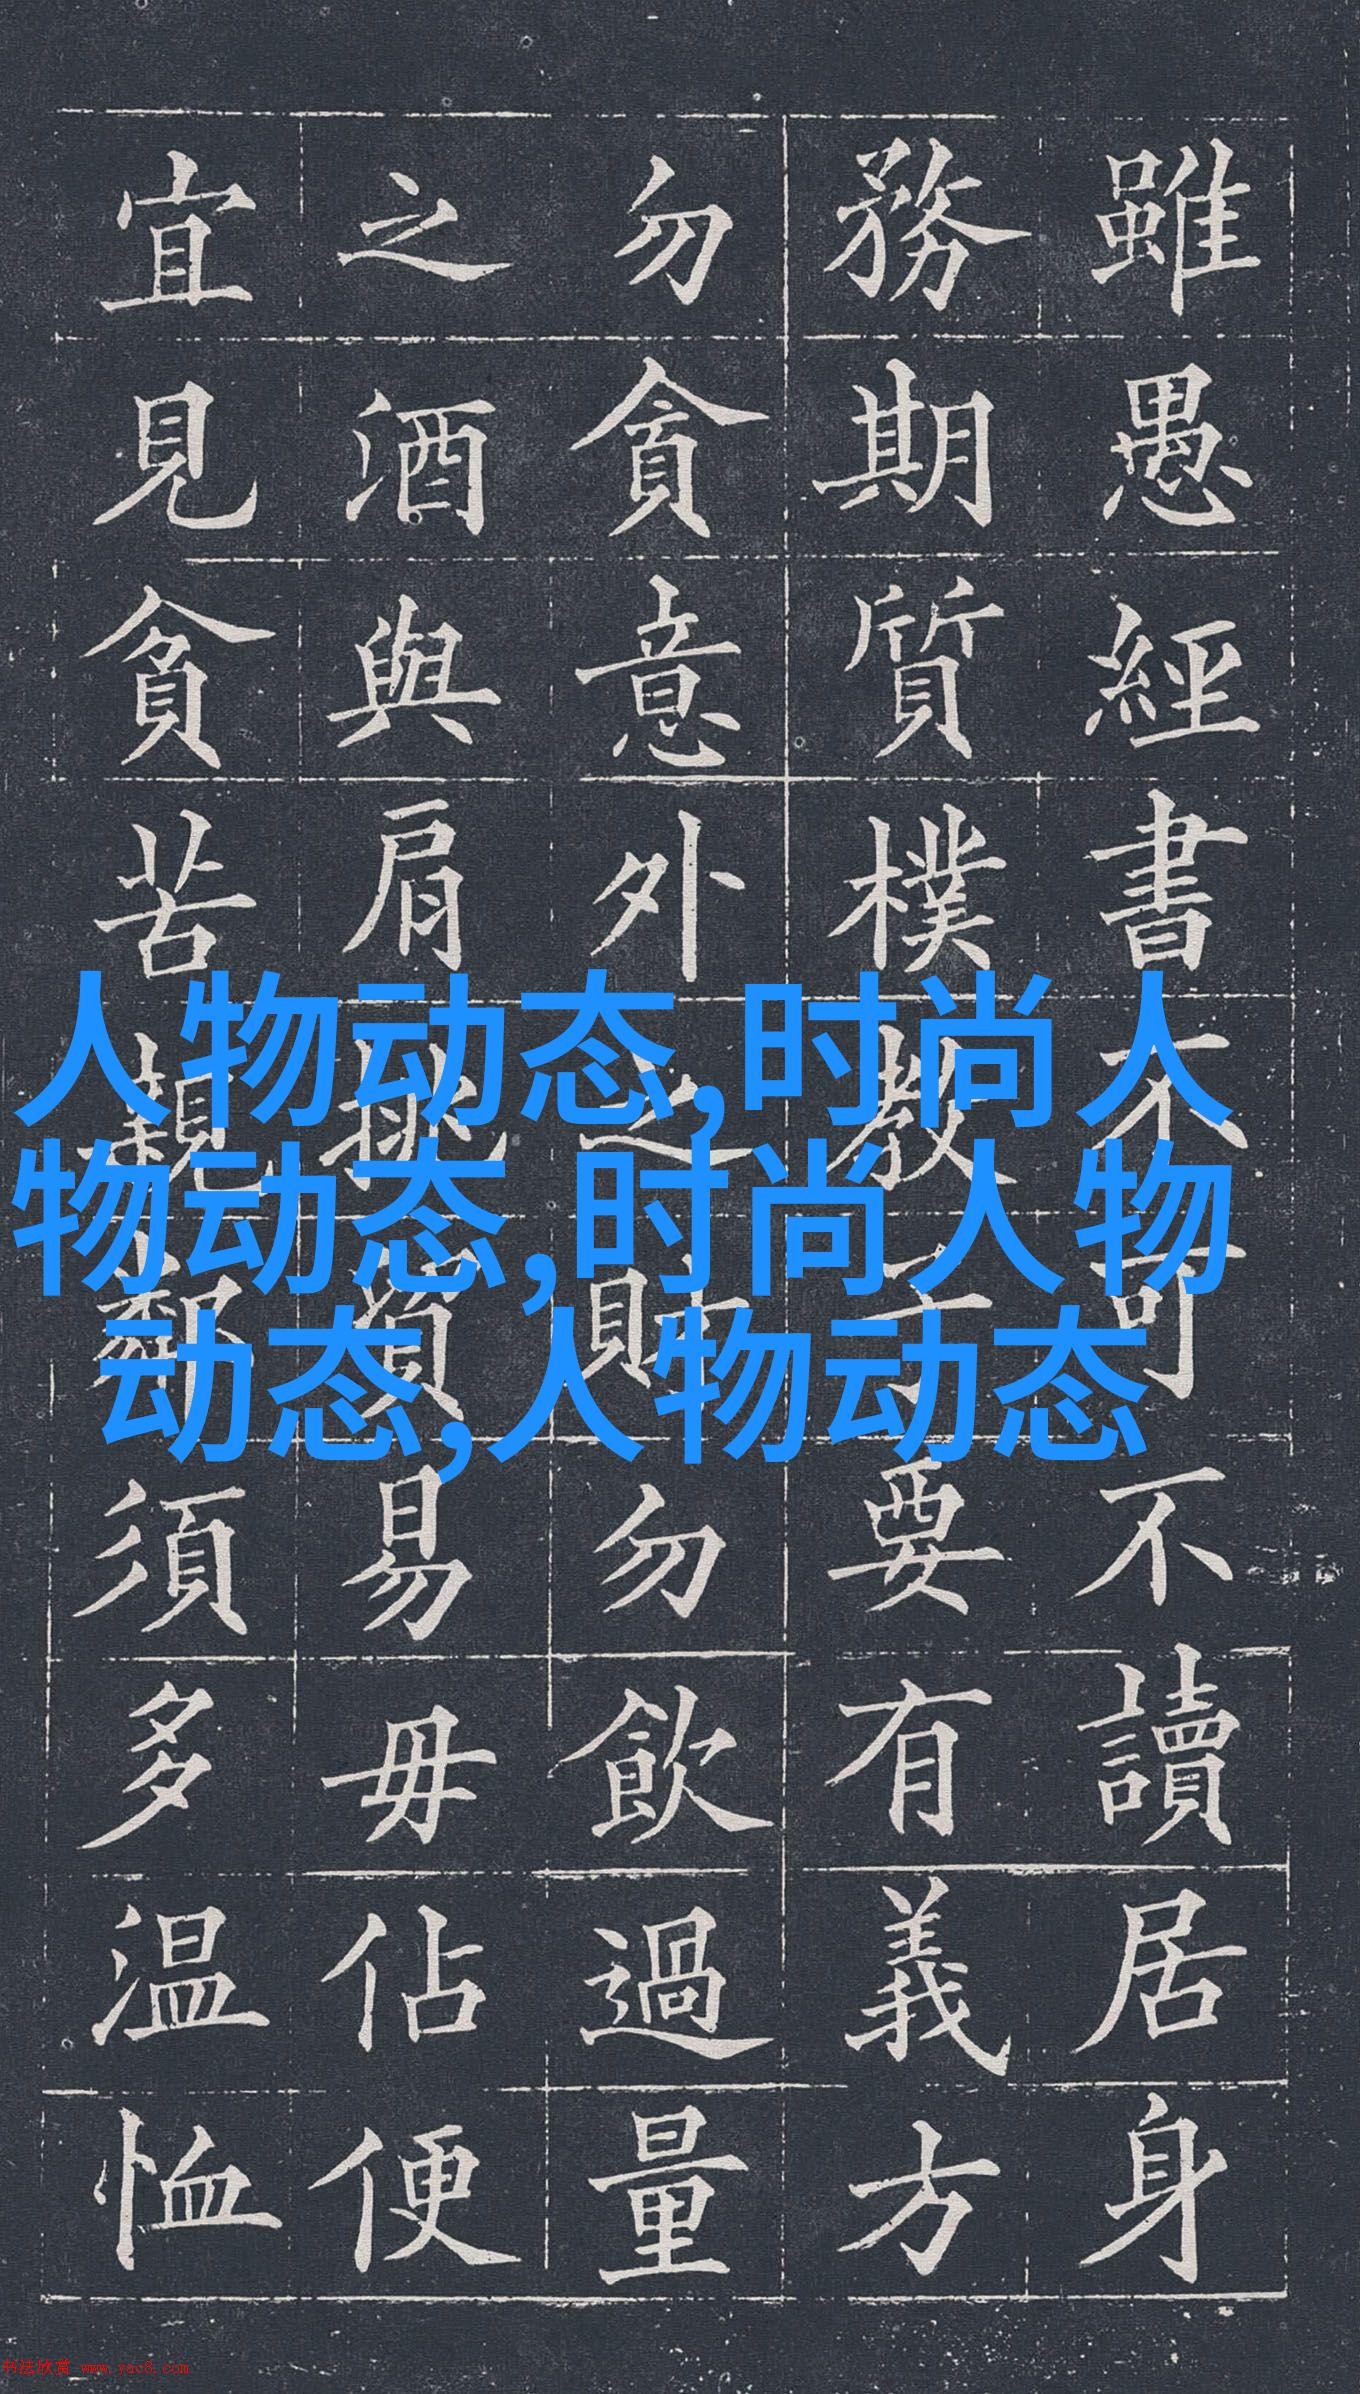 雖愚經書不可不讀居身
務期質樸教子要有義方
勿貪意外之財勿飲過量
之酒與肩挑貿易毋佔便
宜見貧苦親鄰須多温恤
人物动态,时尚人
物动态,时尚人物
动态,人物动态
书法欣赏 www.yac8.com